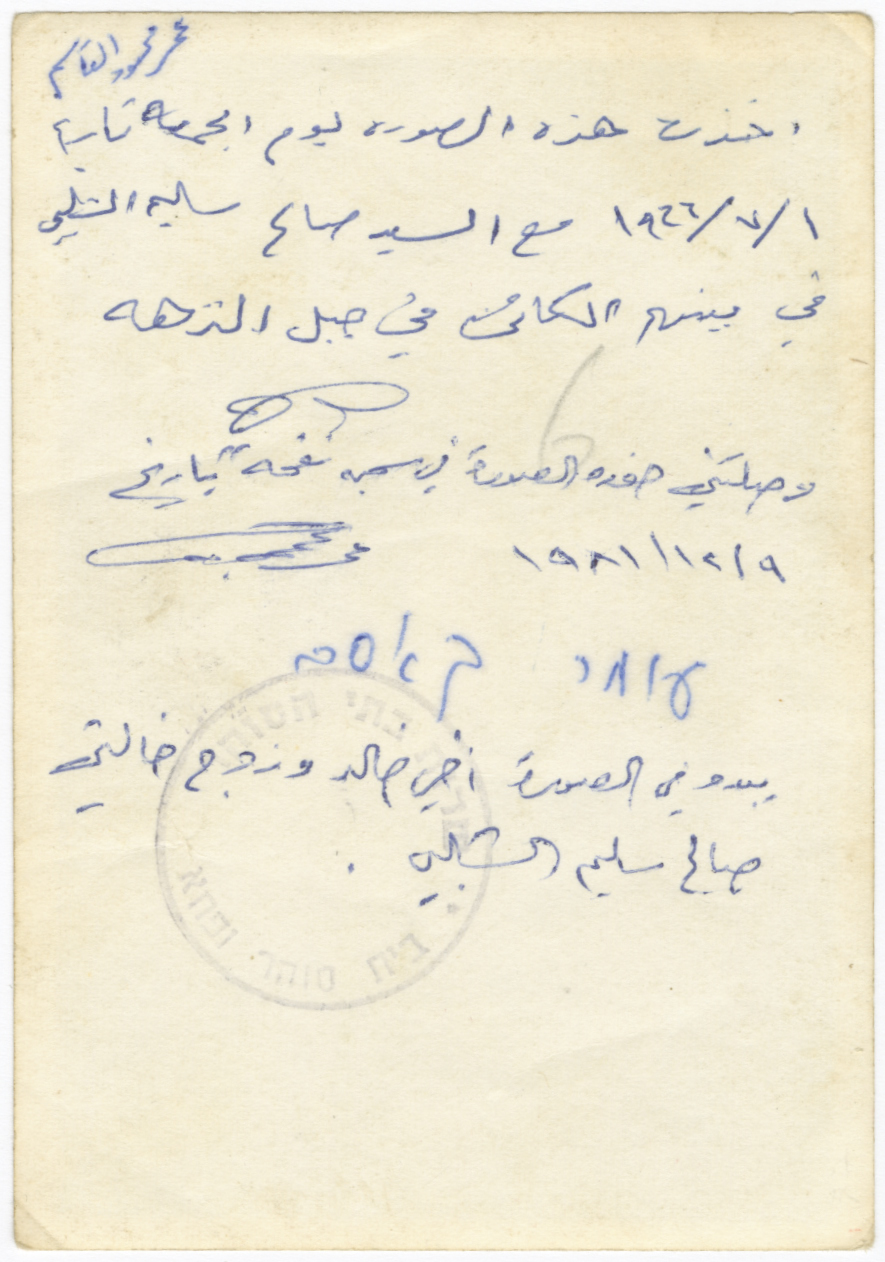 عمر محمود القاسم
اخذت هذه الصوره يوم الجمعه تاريخ
١/٧/١٩٦٦ مع السيد صالح سليم الشلبي
في بيتهم الكائن في جبل النزهه
وصلتني هذه الصورة في سجن نفحة بتاريخ
٩/١٢/١٩٨١
עומר קאסם
يبدو في الصورة أخي خالد وزوج خالتي
صالح سليم الشلبي.
שרות בתי הסוהר